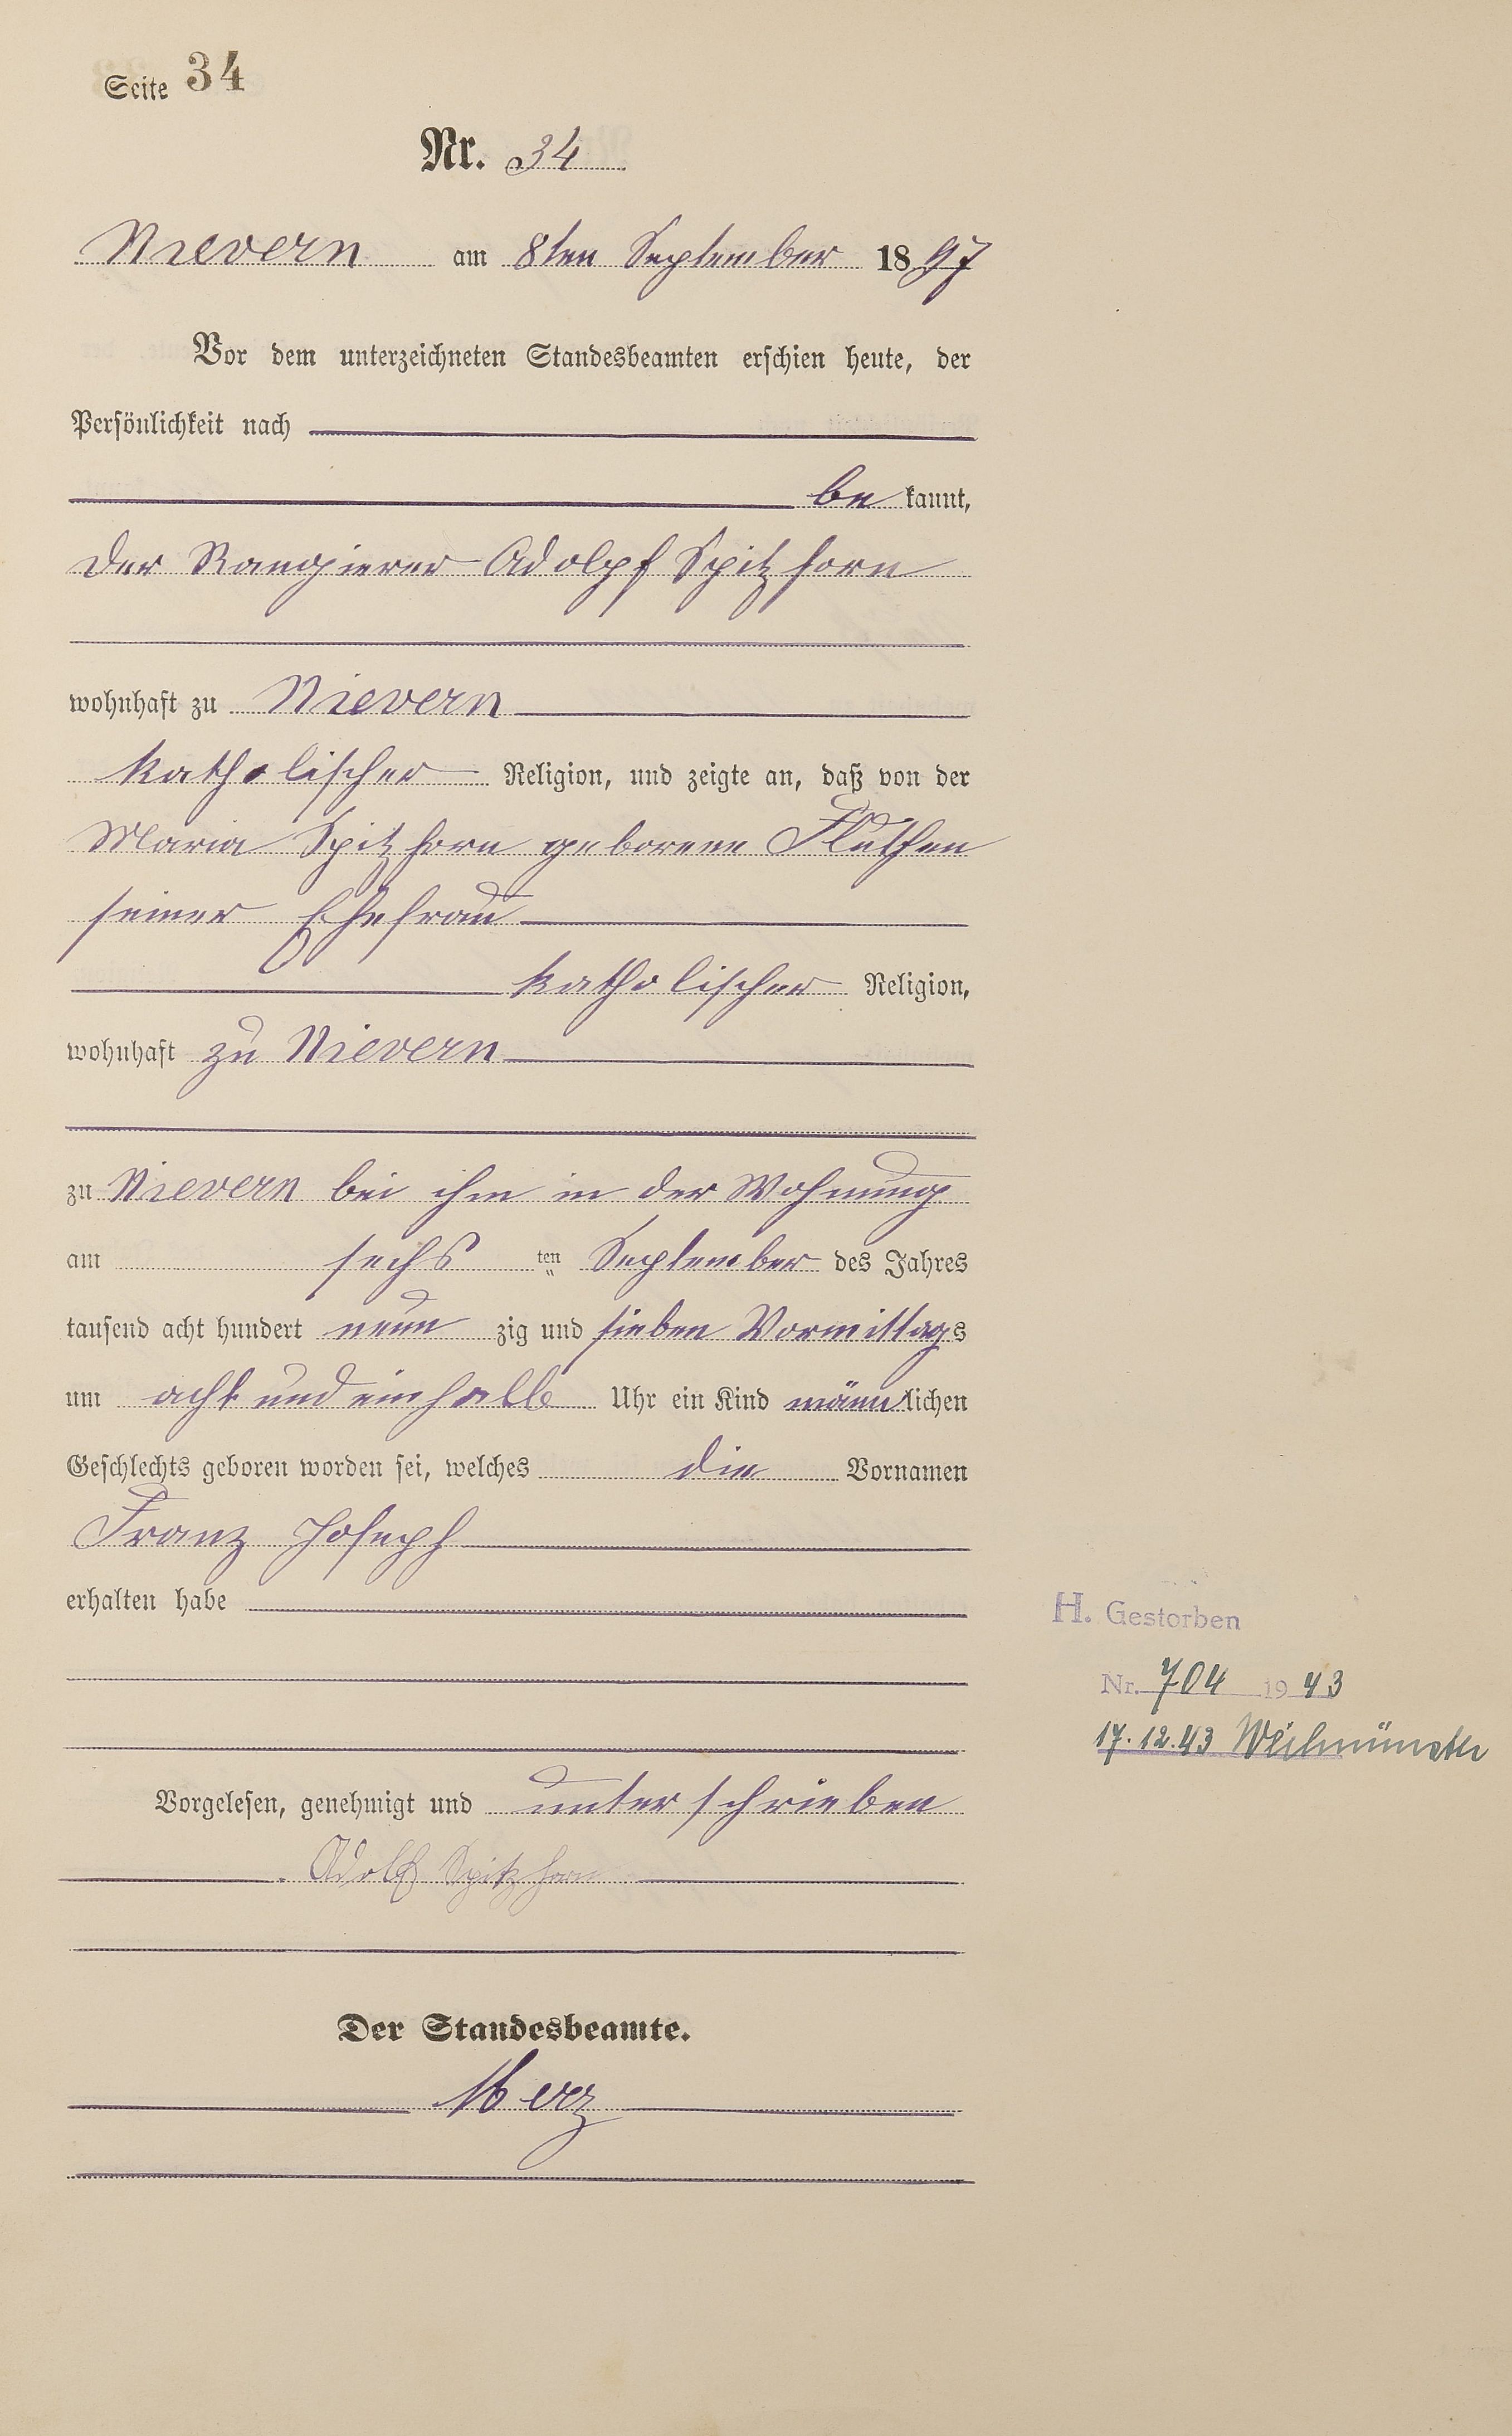 Seite 34
Nr. 34
Nievern am 8ten September 1897
Vor dem unterzeichneten Standesbeamten erschien heute, der
Persönlichkeit nach
be kannt,
der Rangierer Adolpf Spitzhorn
wohnhaft zu Nievern
katholischer Religion, und zeigte an, daß von der
Maria Spitzhorn geborene
seiner Ehefrau
katholischer Religion,
wohnhaft zu Nievern
zu Nievern bei ihm in der Wohnung
am sechs ten September des Jahres
tausend acht hundert neun zig und sieben Vormittags
um acht und einhalb Uhr ein Kind männlichen
Geschlechts geboren worden sei, welches die Vornamen
Franz Joseph
erhalten habe
H. Gestorben
Nr. 704 1943
17.12.43 Weilmünster
Vorgelesen, genehmigt und unterschrieben
Adolf Spitzhorn
Der Standesbeamte.
Merz